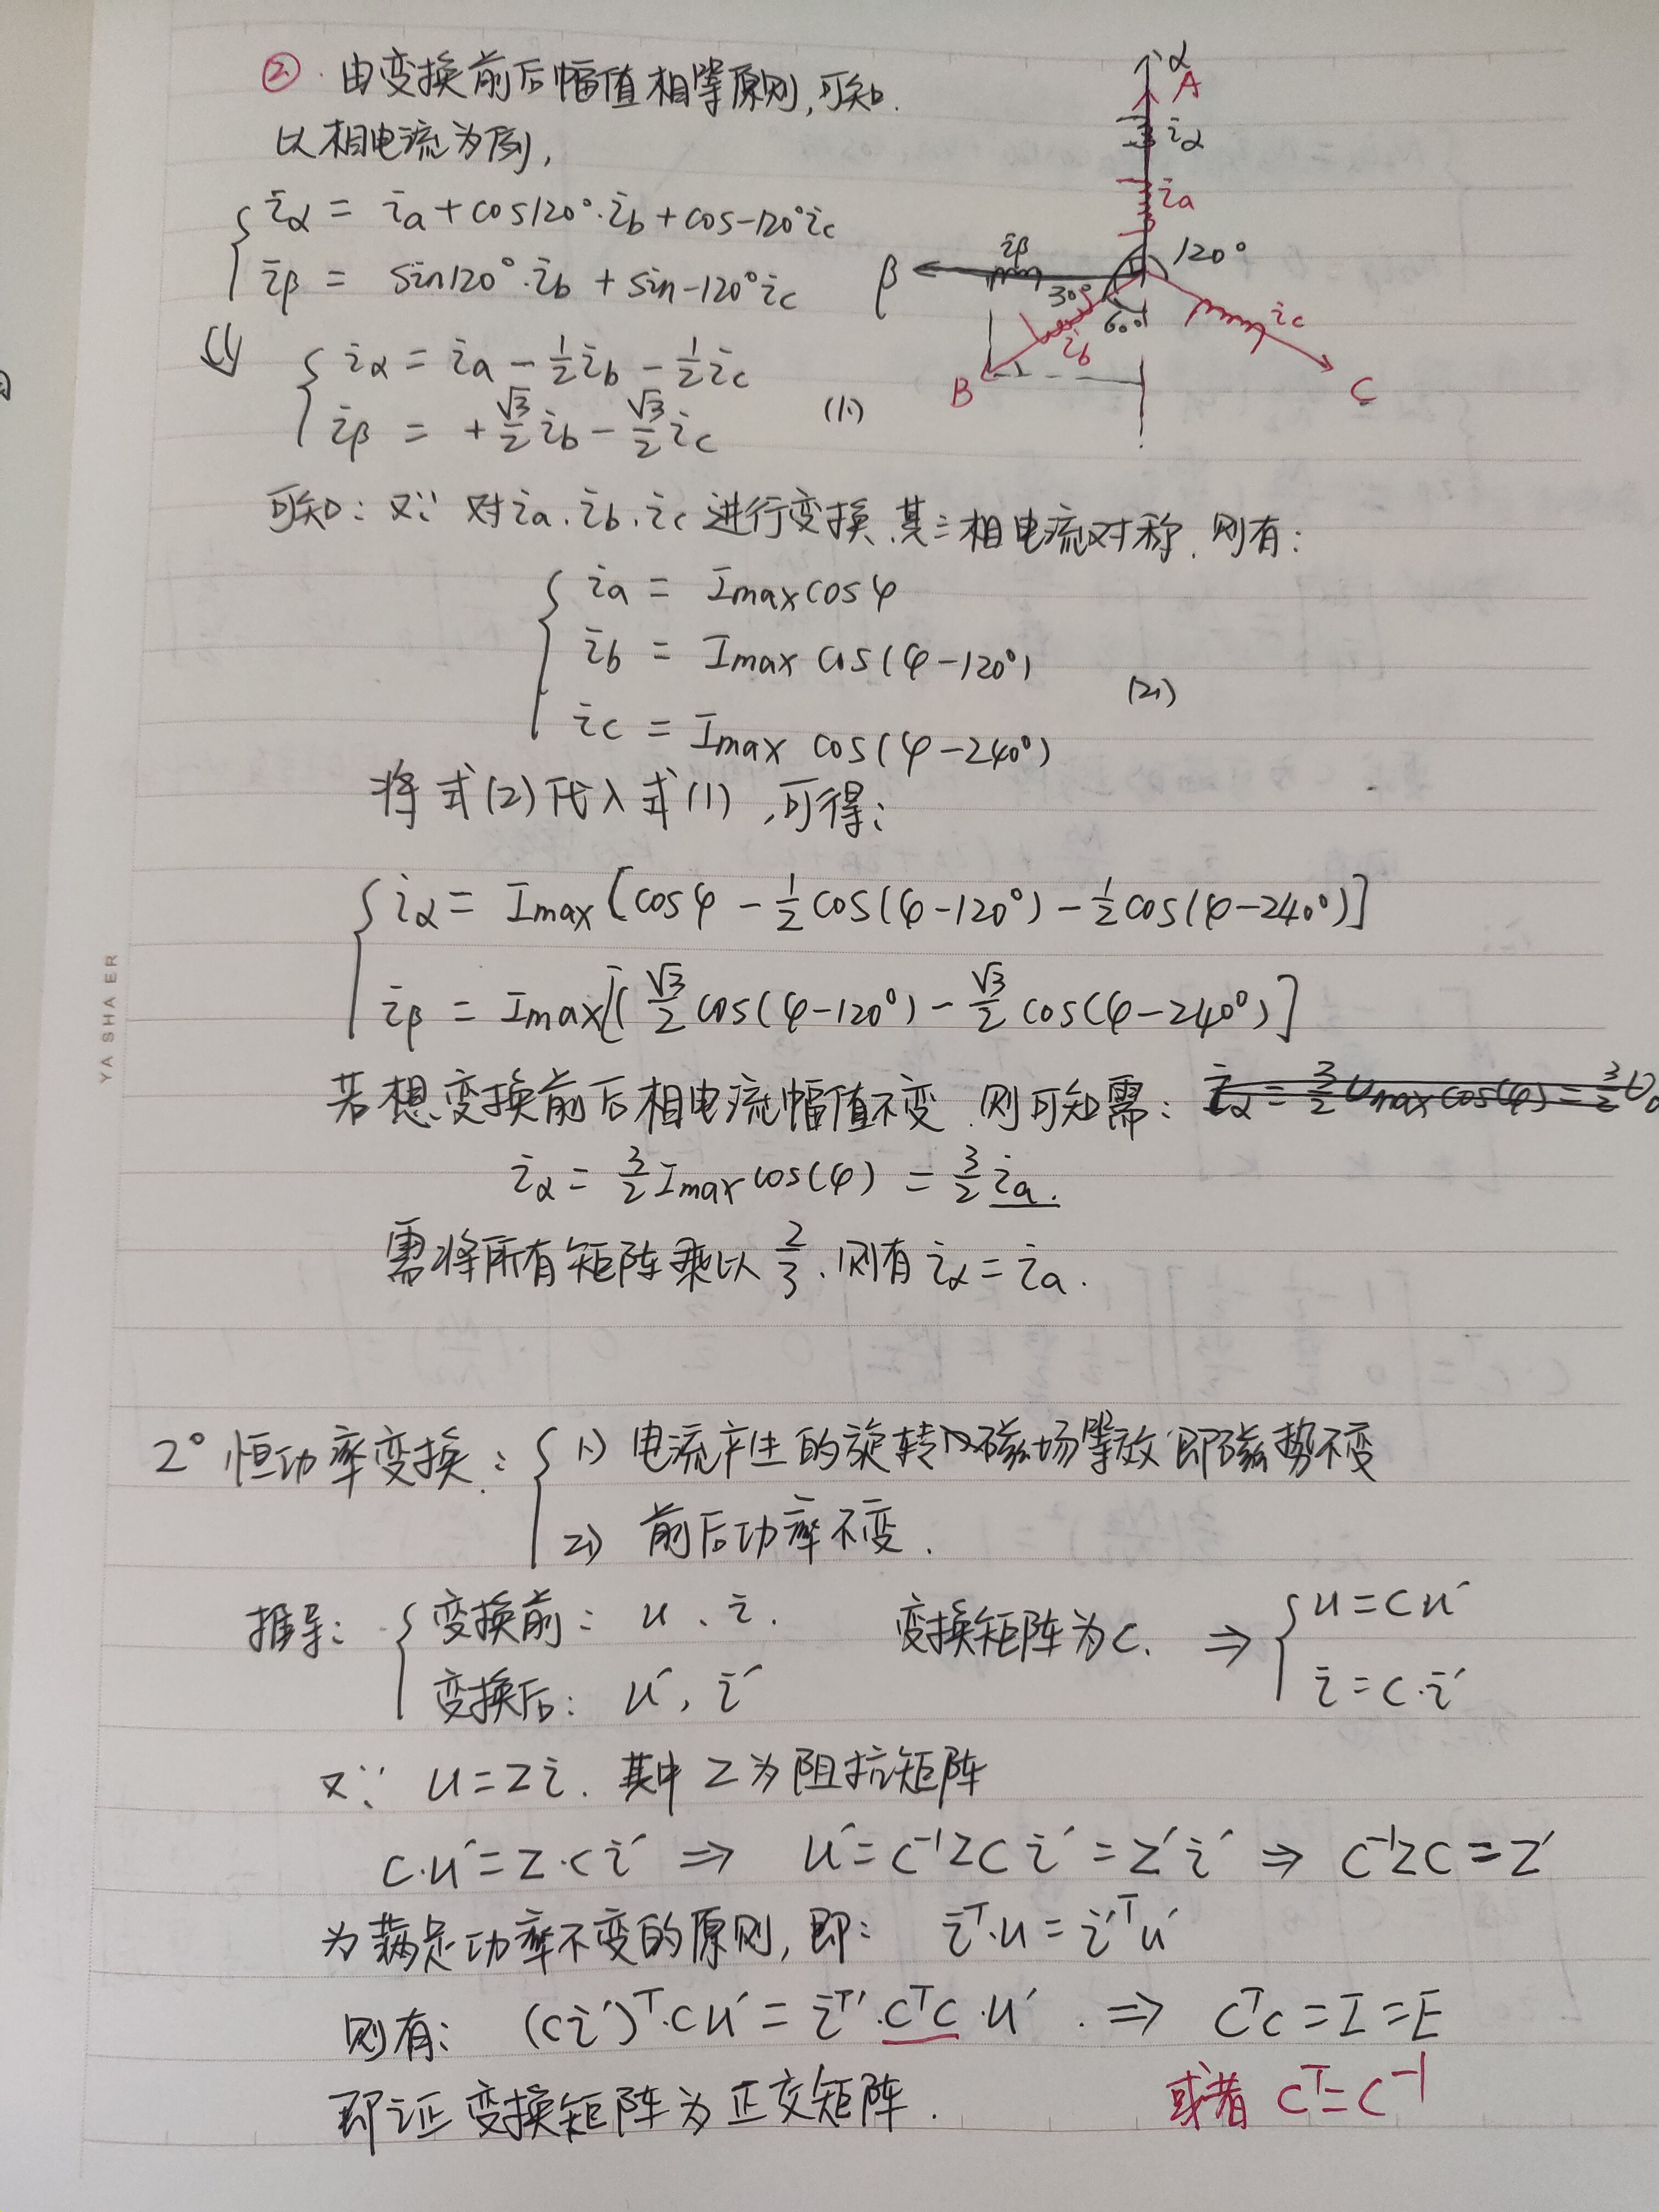 ② 由变换前后幅值相等原则,可知.
以相电流为例,
iα = ia + cos120°·ib + cos-120°ic
iβ = sin120°·ib + sin-120°ic
⇓ iα = ia - 1/2 ib - 1/2 ic
iβ = + √3/2 ib - √3/2 ic (1)
α
A
iα
ia
120°
β
iβ
30°
60°
ib
B
ic
C
可知: 又∵ 对ia、ib、ic进行变换,其三相电流对称,则有:
ia = Imax cosφ
ib = Imax cos(φ-120°)
ic = Imax cos(φ-240°) (2)
将式(2)代入式(1),可得:
iα = Imax[cosφ - 1/2 cos(φ-120°) - 1/2 cos(φ-240°)]
iβ = Imax[√3/2 cos(φ-120°) - √3/2 cos(φ-240°)]
YASHAER
若想变换前后相电流幅值不变,则可知需:
iα = 3/2 Imax cos(φ) = 3/2 ia.
需将所有矩阵乘以 2/3,则有 iα = ia.
2° 恒功率变换: 1) 电流产生的旋转磁场等效即磁势不变
2) 前后功率不变.
推导: 变换前: u、i. 变换矩阵为C. ⇒ u = Cu′
变换后: u′, i′ i = C·i′
又∵ u = Zi. 其中Z为阻抗矩阵
C·u′ = Z·Ci′ ⇒ u′ = C⁻¹ZCi′ = Z′i′ ⇒ C⁻¹ZC = Z′
为满足功率不变的原则,即: iᵀ·u = i′ᵀu′
则有: (Ci′)ᵀ·Cu′ = iᵀ′·CᵀC·u′. ⇒ CᵀC = I = E
即证变换矩阵为正交矩阵. 或者 Cᵀ=C⁻¹